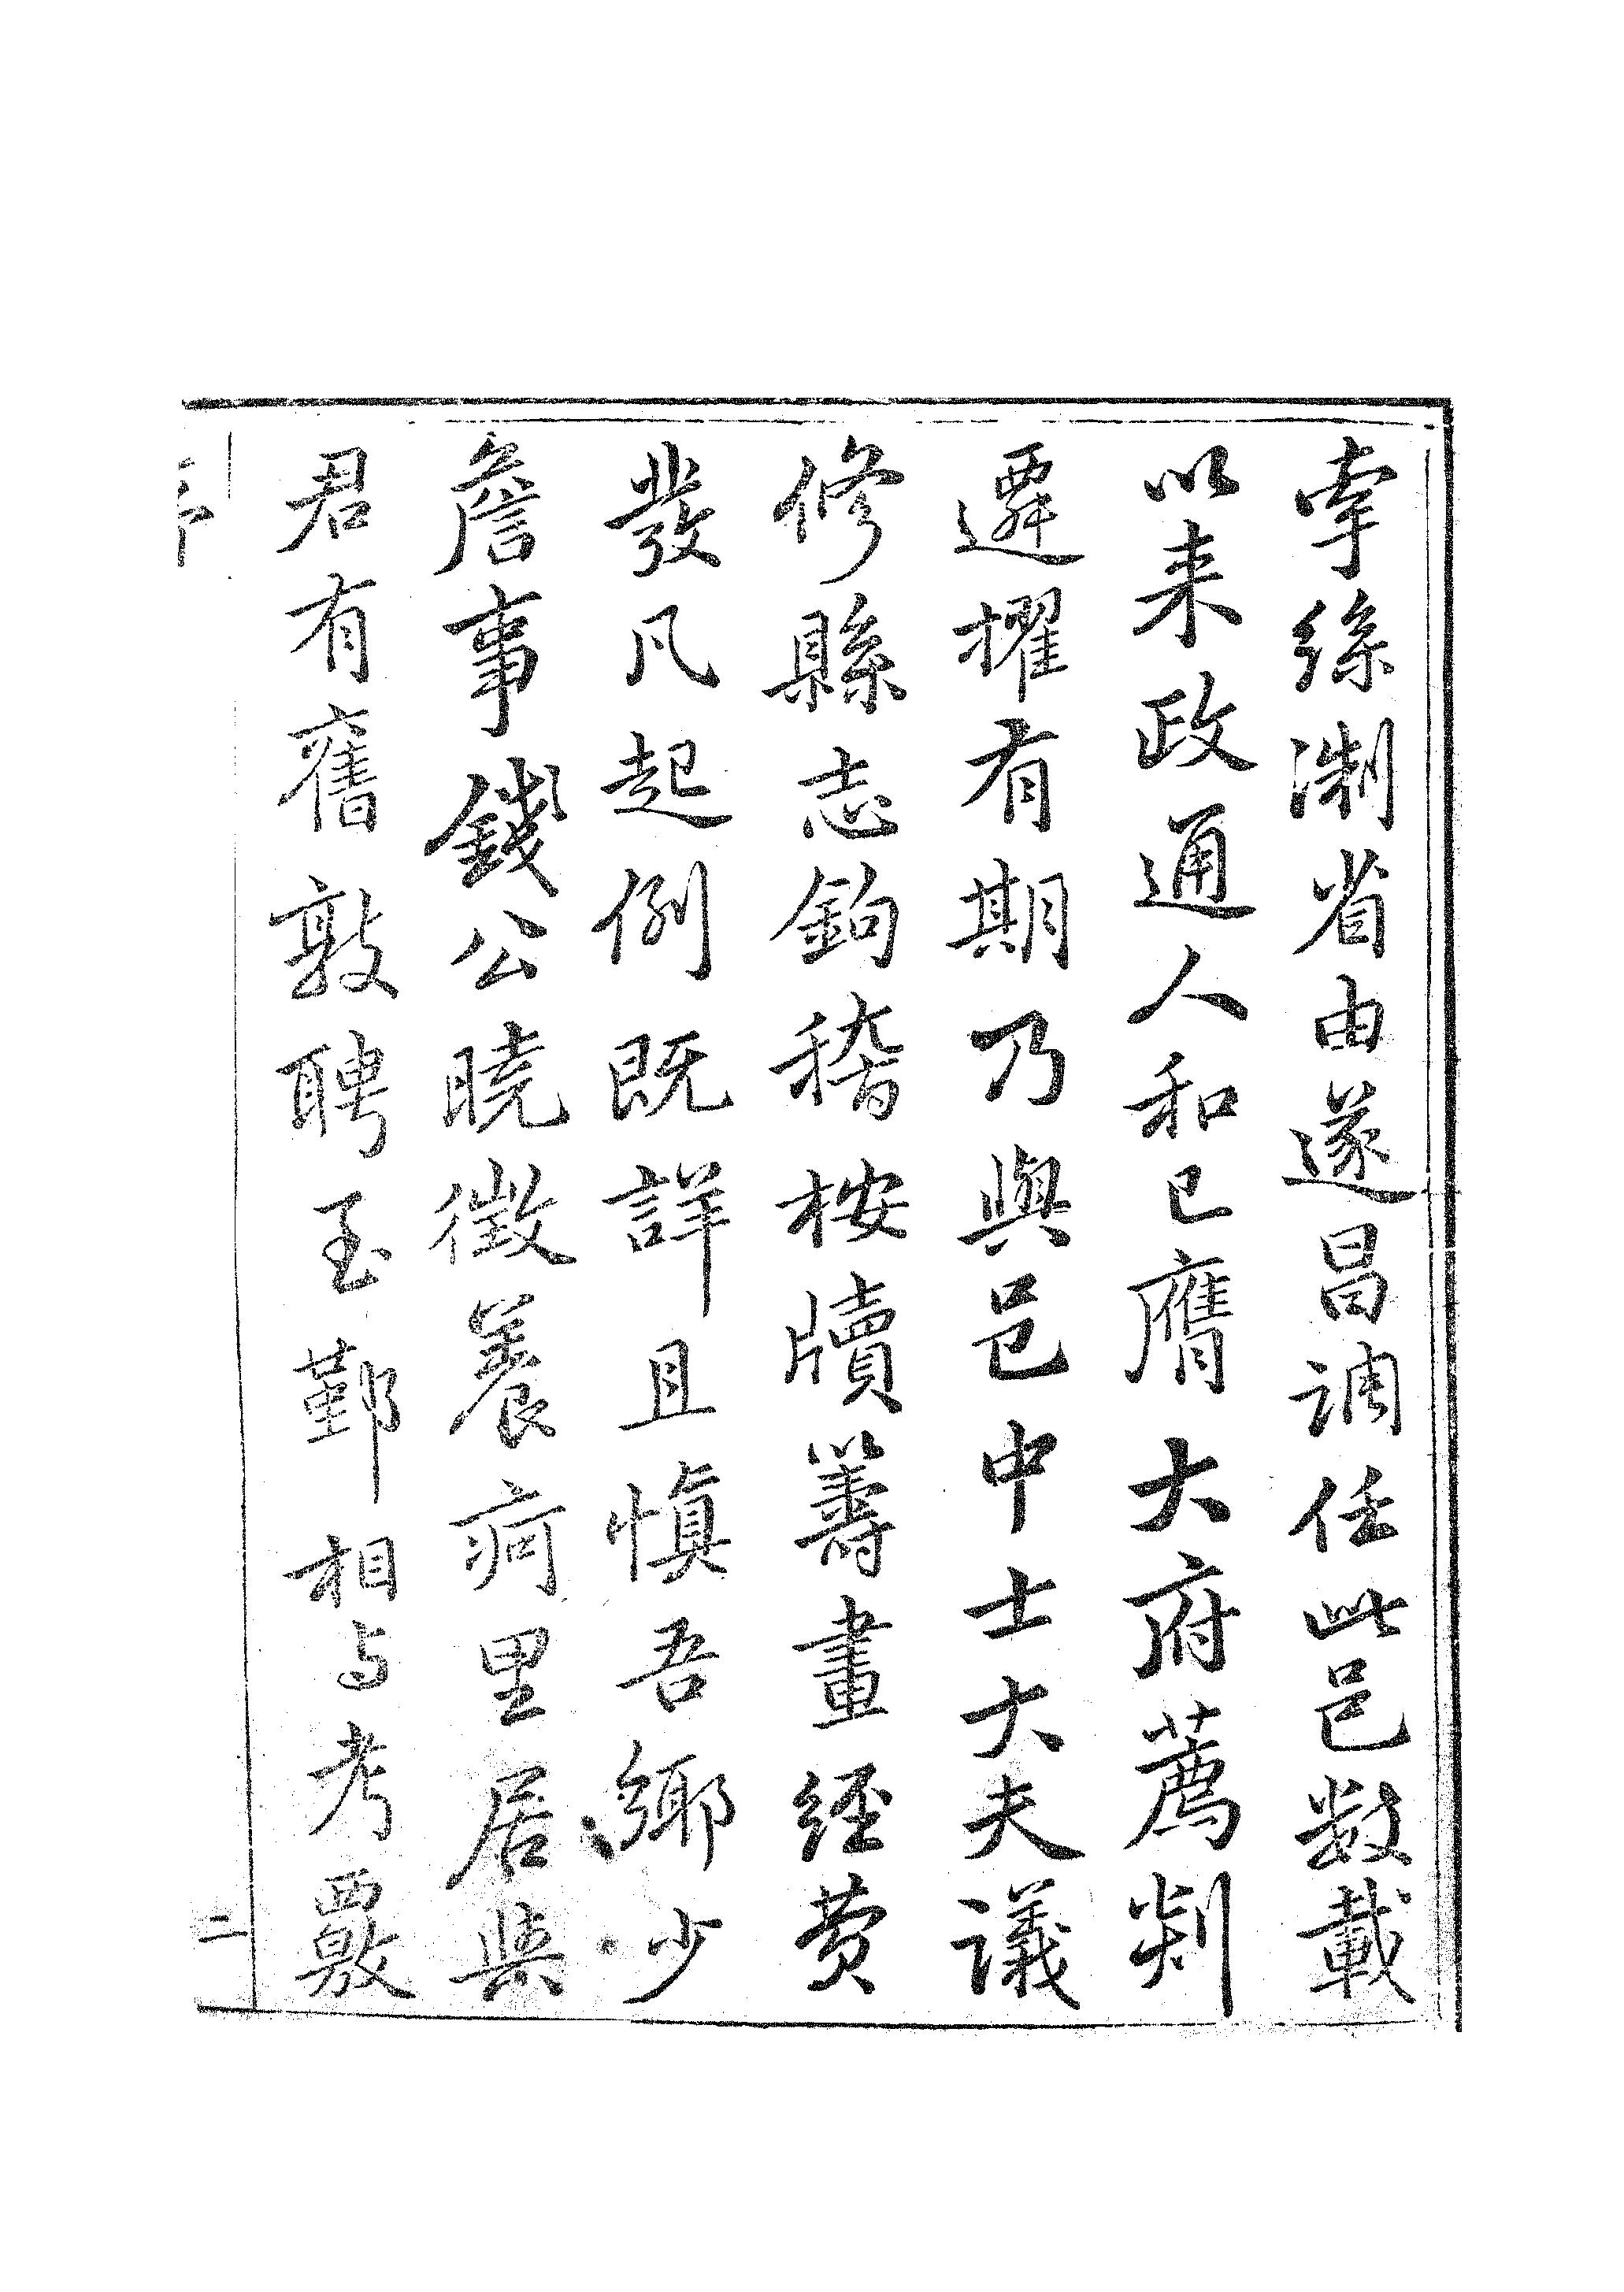 宰綏淛省由遂昌調任此邑数載
以来政通人和已膺大府薦剡
遷擢有期乃與邑中士大夫議
修縣志鉤稽桉牘籌畫經费
發凡起例既詳且慎吾鄉少
詹事錢公曉徵養疴里居與
君有舊敦聘至鄞相与考覈
序
二